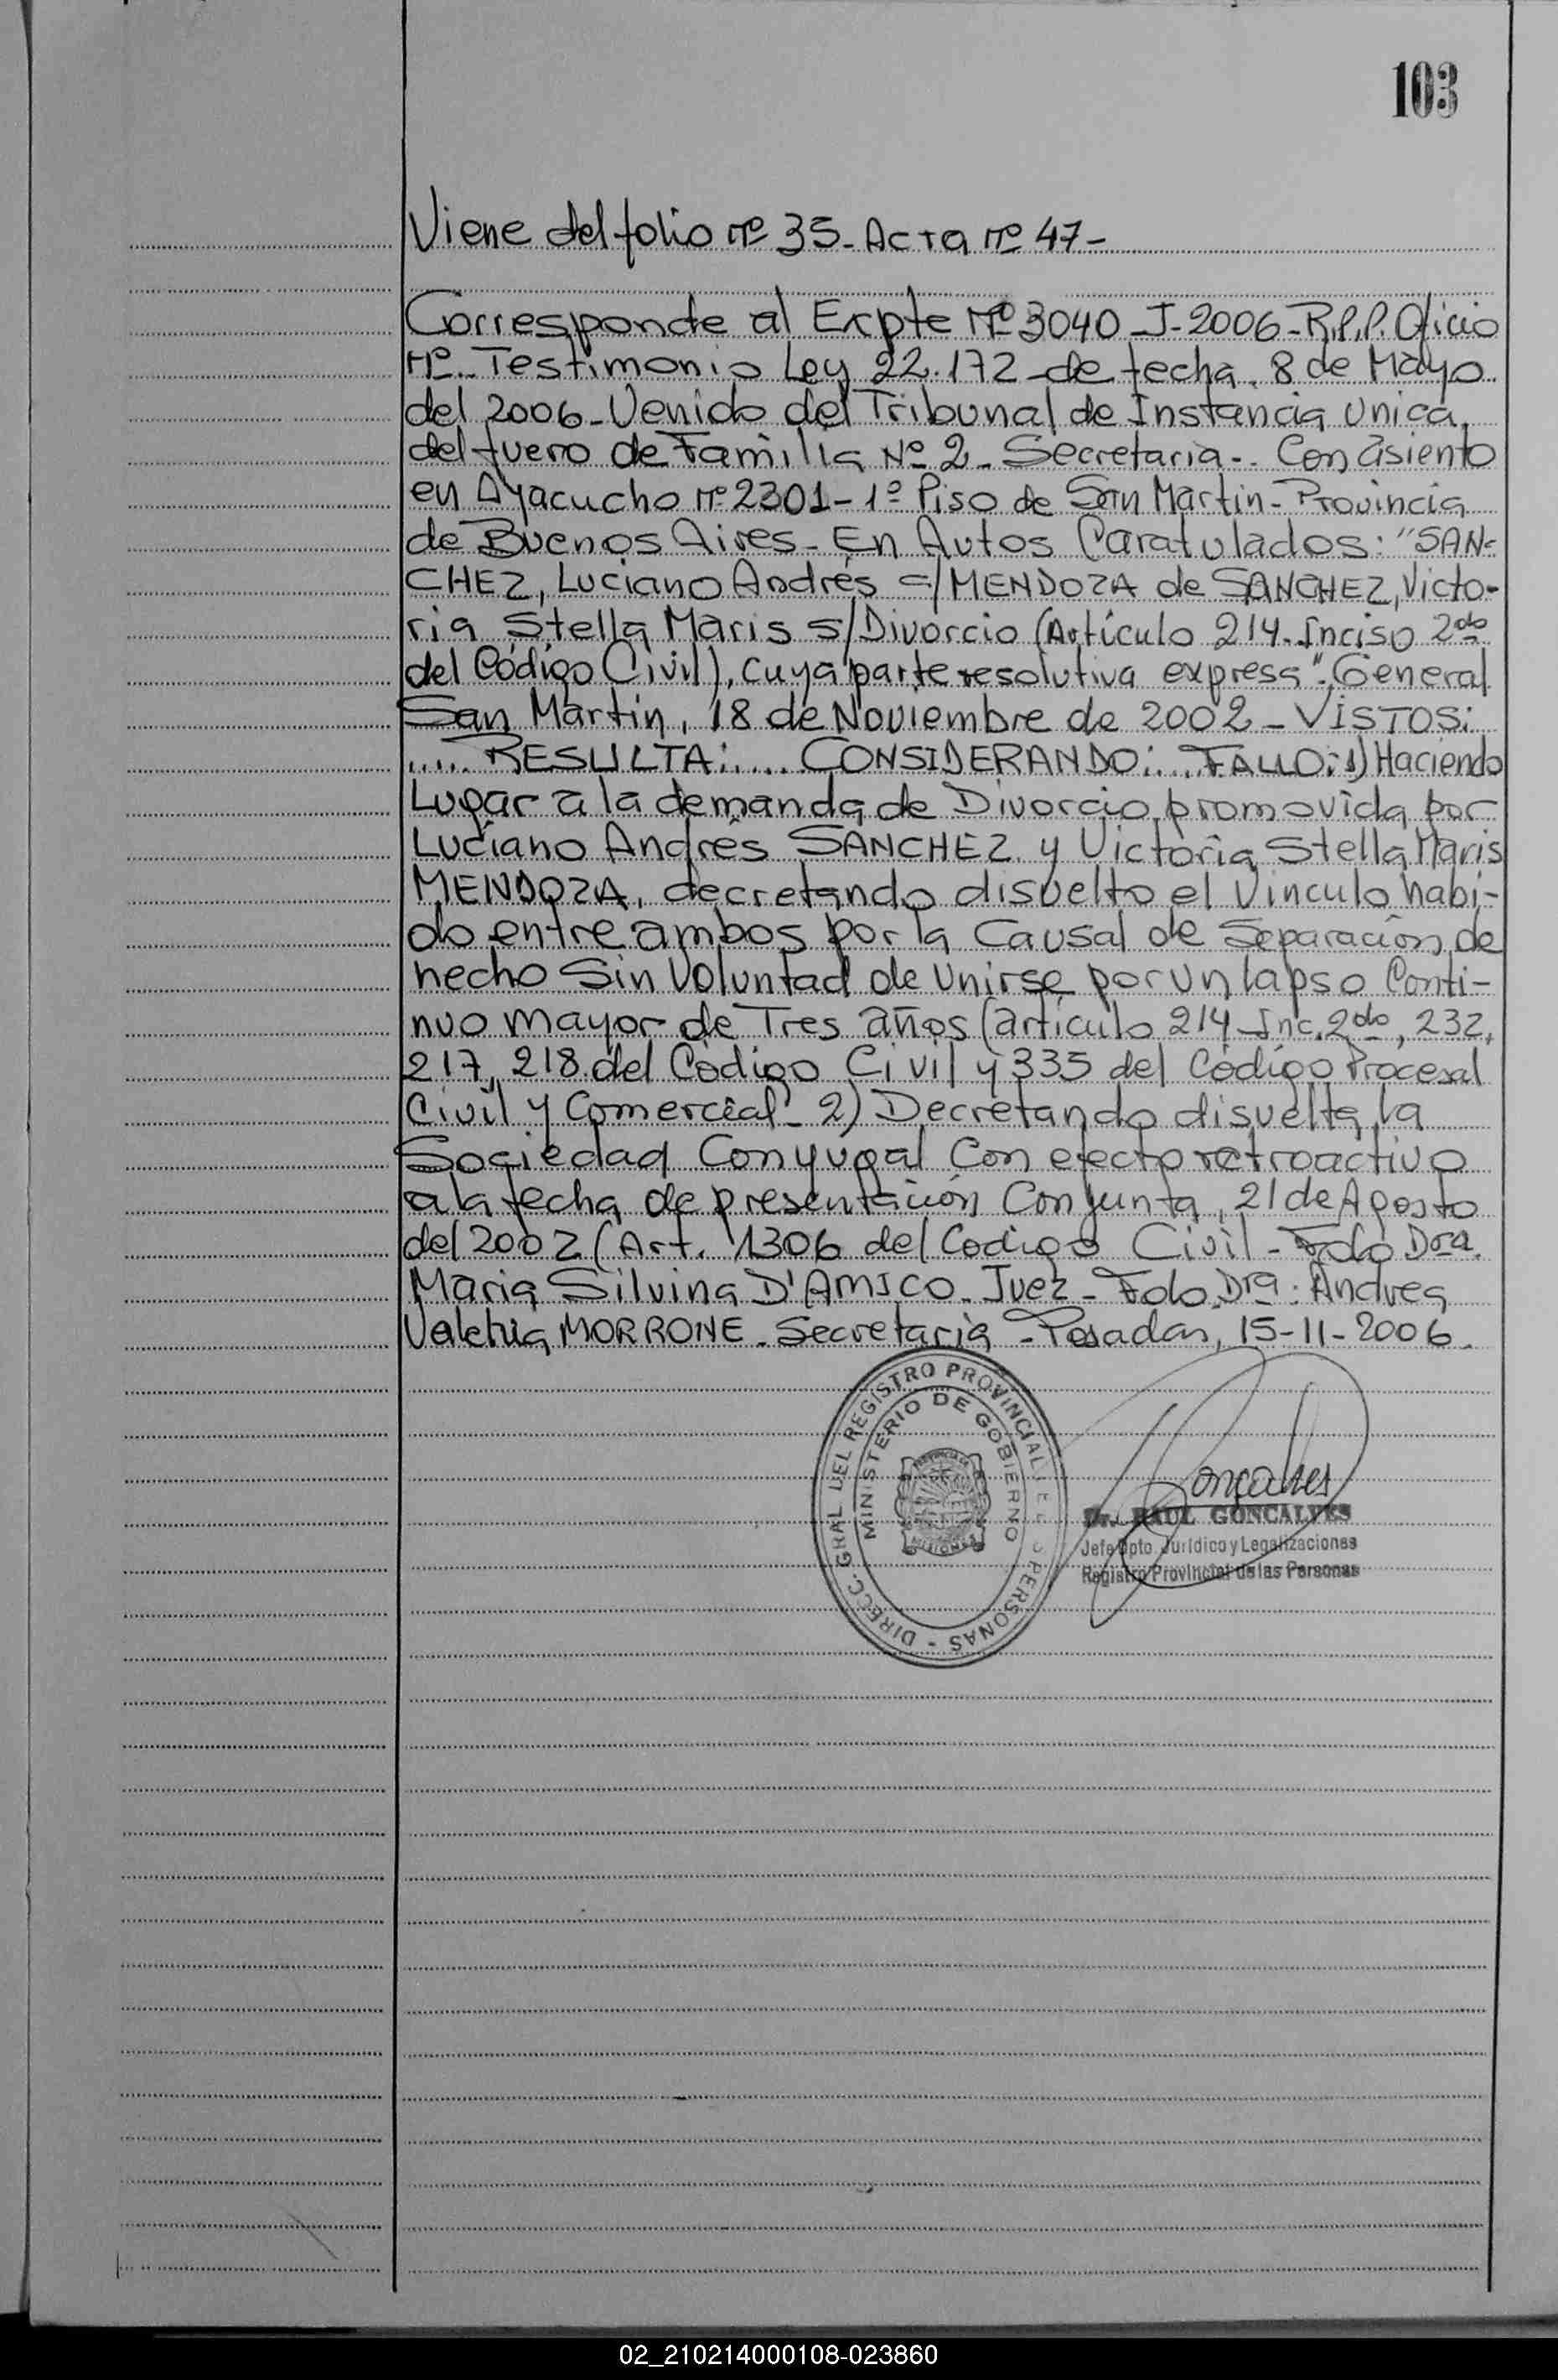 103
Viene del folio nº 35- Acta nº 47-
Corresponde al Expte Nº 3040-J-2006-R.P.P. Oficio
Nº- Testimonio Ley 22.172 de fecha 8 de Mayo
del 2006-Venido del Tribunal de Instancia Unica
del fuero de Familia Nº 2- Secretaria-. Con asiento
en Ayacucho nº 2301-1º Piso de San Martin- Provincia
de Buenos Aires- En Autos Caratulados: "SAN-
CHEZ, Luciano Andrés c/MENDOZA de SANCHEZ, Victo-
ria Stella Maris s/Divorcio (Artículo 214-Inciso 2do
del Código Civil), cuya parte resolutiva expresa "General
San Martin, 18 de Noviembre de 2002-VISTOS:
..... RESULTA:..... CONSIDERANDO:.... FALLO: 1) Haciendo
Lugar a la demanda de Divorcio promovida por
Luciano Andrés SANCHEZ y Victoria Stella Maris
MENDOZA, decretando disuelto el Vinculo habi-
do entre ambos por la Causal de Separación de
hecho Sin Voluntad de Unirse por un lapso Conti-
nuo mayor de Tres años (artículo 214-Inc. 2do, 232,
217, 218 del Código Civil y 335 del Código Procesal
Civil y Comercial- 2) Decretando disuelta la
Sociedad Conyugal Con efecto retroactivo
a la fecha de presentación Conjunta, 21 de Agosto
del 2002 (Art. 1306 del Codigo Civil- Fdo Dra.
Maria Silvina D'AMICO- Juez- Fdo. Dra: Andrea
MORRONE- Secretaria -Posadas, 15-11-2006.
DIRECC. GRAL DEL REGISTRO PROVINCIAL DE LAS PERSONAS -
MINISTERIO DE GOBIERNO
MISIONES
Goncalves
Dr. RAUL GONCALVES
Jefe Dpto. Jurídico y Legalizaciones
Registro Provincial de las Personas
02_210214000108-023860